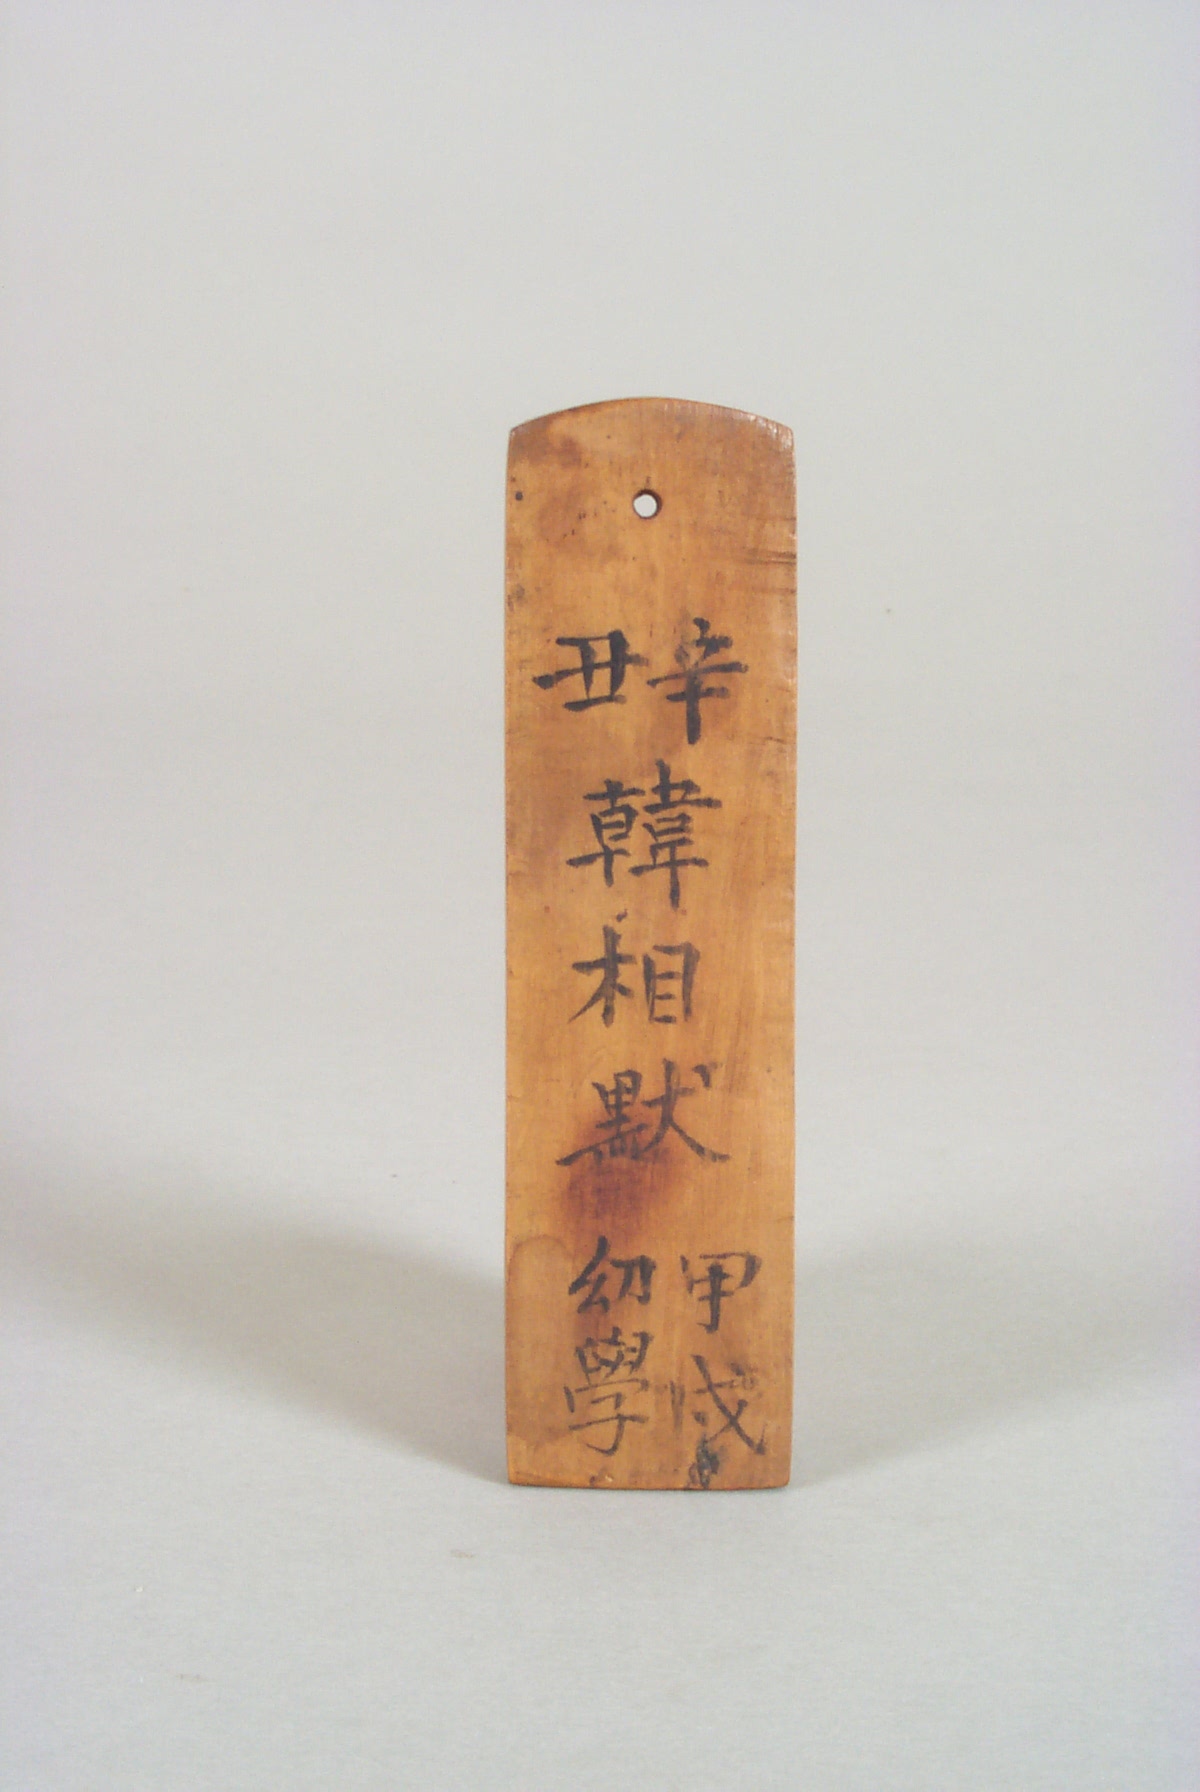 辛丑
韓相默
甲戌
幼學